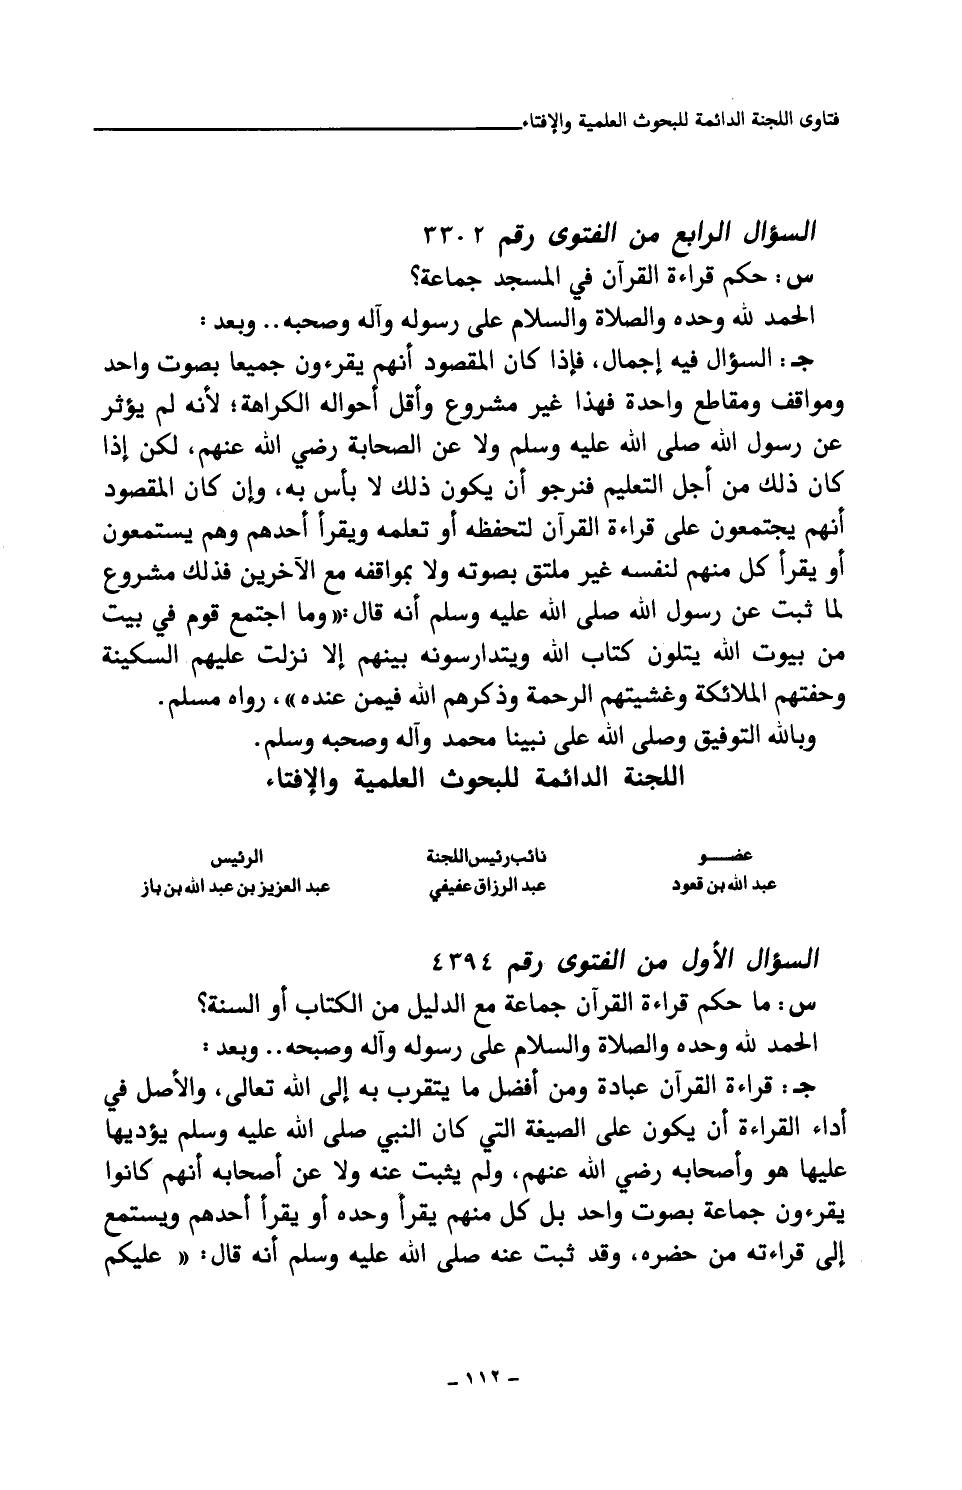 فتاوى اللجنة الدائمة للبحوث العلمية والإفتاء
السؤال الرابع من الفتوى رقم ٣٣٠٢
س: حكم قراءة القرآن في المسجد جماعة؟
الحمد لله وحده والصلاة والسلام على رسوله وآله وصحبه.. وبعد:
جـ: السؤال فيه إجمال، فإذا كان المقصود أنهم يقرءون جميعا بصوت واحد
ومواقف ومقاطع واحدة فهذا غير مشروع وأقل أحواله الكراهة؛ لأنه لم يؤثر
عن رسول الله صلى الله عليه وسلم ولا عن الصحابة رضي الله عنهم، لكن إذا
كان ذلك من أجل التعليم فنرجو أن يكون ذلك لا بأس به، وإن كان المقصود
أنهم يجتمعون على قراءة القرآن لتحفظه أو تعلمه ويقرأ أحدهم وهم يستمعون
أو يقرأ كل منهم لنفسه غير ملتق بصوته ولا بمواقفه مع الآخرين فذلك مشروع
لما ثبت عن رسول الله صلى الله عليه وسلم أنه قال:«وما اجتمع قوم في بيت
من بيوت الله يتلون كتاب الله ويتدارسونه بينهم إلا نزلت عليهم السكينة
وحفتهم الملائكة وغشيتهم الرحمة وذكرهم الله فيمن عنده»، رواه مسلم.
وبالله التوفيق وصلى الله على نبينا محمد وآله وصحبه وسلم.
اللجنة الدائمة للبحوث العلمية والإفتاء
عضـــو نائب رئيس اللجنة الرئيس
عبد الله بن قعود عبد الرزاق عفيفي عبد العزيز بن عبد الله بن باز
السؤال الأول من الفتوى رقم ٤٣٩٤
س: ما حكم قراءة القرآن جماعة مع الدليل من الكتاب أو السنة؟
الحمد لله وحده والصلاة والسلام على رسوله وآله وصبحه.. وبعد:
جـ: قراءة القرآن عبادة ومن أفضل ما يتقرب به إلى الله تعالى، والأصل في
أداء القراءة أن يكون على الصيغة التي كان النبي صلى الله عليه وسلم يؤديها
عليها هو وأصحابه رضي الله عنهم، ولم يثبت عنه ولا عن أصحابه أنهم كانوا
يقرءون جماعة بصوت واحد بل كل منهم يقرأ وحده أو يقرأ أحدهم ويستمع
إلى قراءته من حضره، وقد ثبت عنه صلى الله عليه وسلم أنه قال: « عليكم
- ١١٢ -